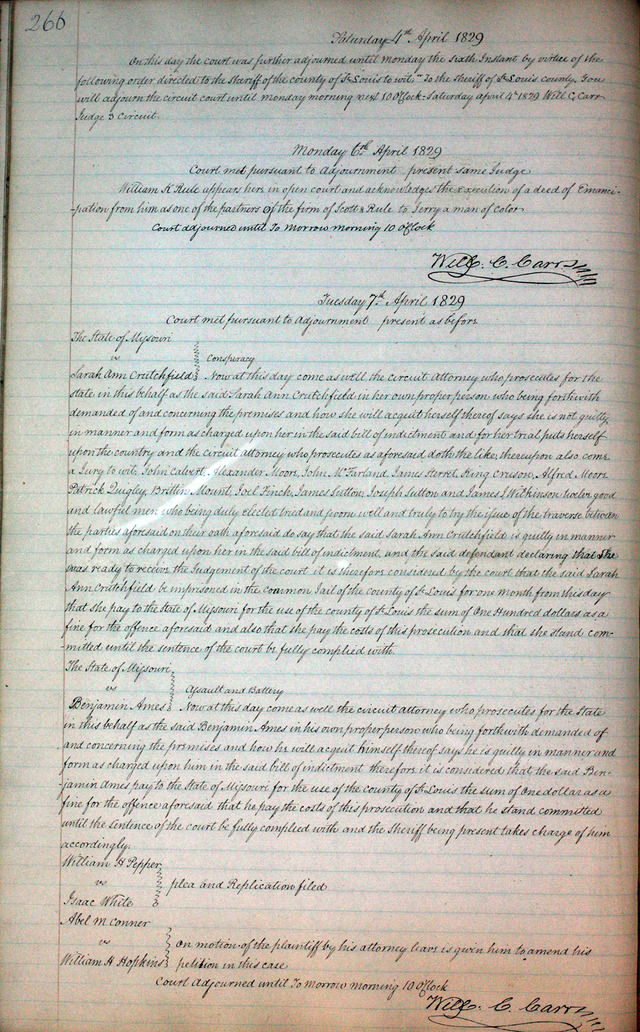 266
Saturday 4th April 1829
On this day the court was further adjourned until monday the sixth Instant by virtue of the
following order directed to the Sheriff of the county of St Louis to wit "To the Sheriff of St Louis county. You
will adjourn the circuit court until monday morning next 10 O'Clock - Saturday april 4th 1829 Will C. Carr
Judge 3 Circuit.
Monday 6th April 1829
Court met pursuant to Adjournment present same Judge
William K Rule appears here in open court and acknowledges the execution of a deed of Emanci-
-pation from him as one of the partners Of the firm of Scott & Rule to Jerry a man of Color
Court adjourned until To Morrow morning 10 O'Clock
Will. C. Carr
Tuesday 7th April 1829
Court met pursuant to Adjournment present as before
The State of Missouri
vs
Conspiracy
Sarah Ann Crutchfield Now at this day come as well the circuit Attorney who prosecutes for the
state in this behalf as the said Sarah Ann Crutchfield in her own proper person who being forthwith
demanded of and concerning the premises and how she will acquit herself thereof says she is not guilty
in manner and form as charged upon her in the said bill of indictment and for her trial puts herself
upon the country and the circuit attorney who prosecutes as aforesaid doth the like, thereupon also come
a Jury to wit, John Calvert, Alexander Moore, John McFarland, James Sterret, King Cruson, Alfred Moore
Patrick Quigley, Brittin Mount, Joel Finch, James Sutton, Joseph Sutton and James Wilkinson twelve good
and lawful men who being duly elected tried and sworn well and truly to try the issue of the traverse between
the parties aforesaid on their oath aforesaid do say that the said Sarah Ann Crutchfield is guilty in manner
and form as charged upon her in the said bill of indictment, and the said defendant declaring that she
was ready to receive the Judgement of the court it is therefore considered by the court that the said Sarah
Ann Crutchfield be imprisoned in the common Jail of the county of St Louis for one month from this day
that she pay to the State of Missouri for the use of the county of St Louis the sum of One Hundred dollars as a
fine for the offence aforesaid and also that she pay the costs of this prosecution and that she stand com-
mitted until the sentence of the court be fully complied with.
The State of Missouri,
vs
Assault and Battery
Benjamin Ames Now at this day come as well the circuit attorney who prosecutes for the State
in this behalf as the said Benjamin Ames in his own proper person who being forthwith demanded of
and concerning the premises and how he will acquit himself thereof says he is guilty in manner and
form as charged upon him in the said bill of indictment therefore it is considered that the said Ben-
-jamin Ames pay to the State of Missouri for the use of the county of St Louis the sum of One dollar as a
fine for the offence aforesaid that he pay the costs of this prosecution and that he stand committed
until the sentence of the court be fully complied with and the Sheriff being present takes charge of him
accordingly.
William H Pepper
vs plea and Replication filed
Isaac White
Abel M Conner
vs On motion of the plaintiff by his attorney leave is given him to amend his
William H Hopkins petition in this case
Court Adjourned until To Morrow morning 10 O'Clock
Will. C. Carr